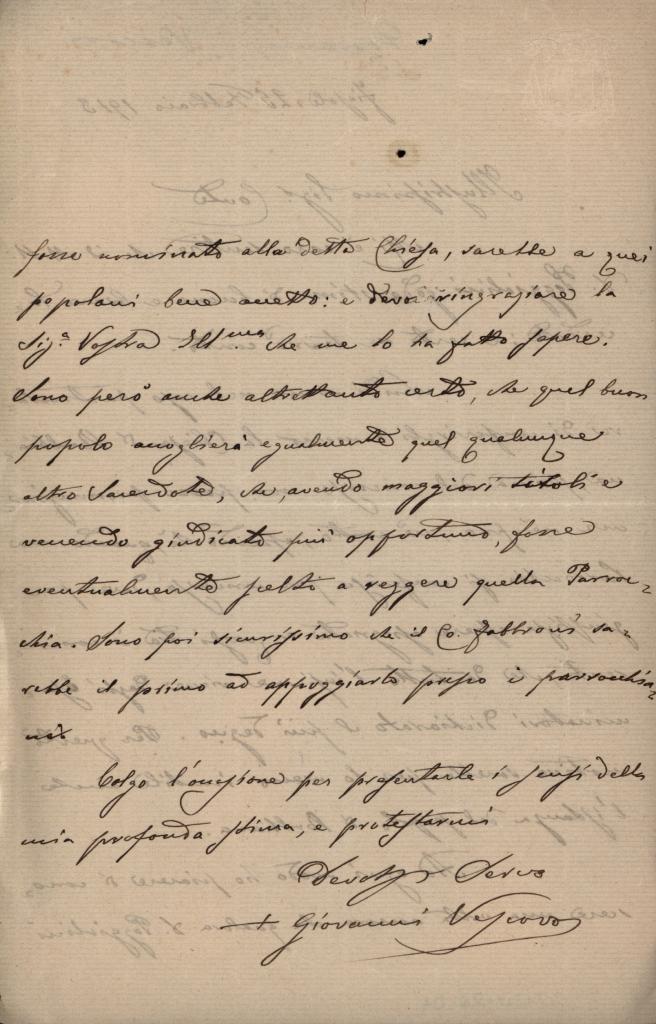 fosse nominato alla detta Chiesa, sarebbe a quei
popolani bene accetto: e devo ringraziare la
Sig.ª Vostra Ill.ma che me lo ha fatto sapere.
Sono però anche altrettanto certo, che quel buon
popolo accoglierà egualmente quel qualunque
altro Sacerdote, che, avendo maggiori titoli e
venendo giudicato più opportuno, fosse
eventualmente scelto a reggere quella Parroc-
chia. Sono poi sicurissimo che il Co. Fabbroni sa-
rebbe il primo ad appoggiarlo presso i parrocchia-
ni.
Colgo l'occasione per presentarle i sensi della
mia profonda stima, e protestarmi
Servo
+ Giovanni Vescovo